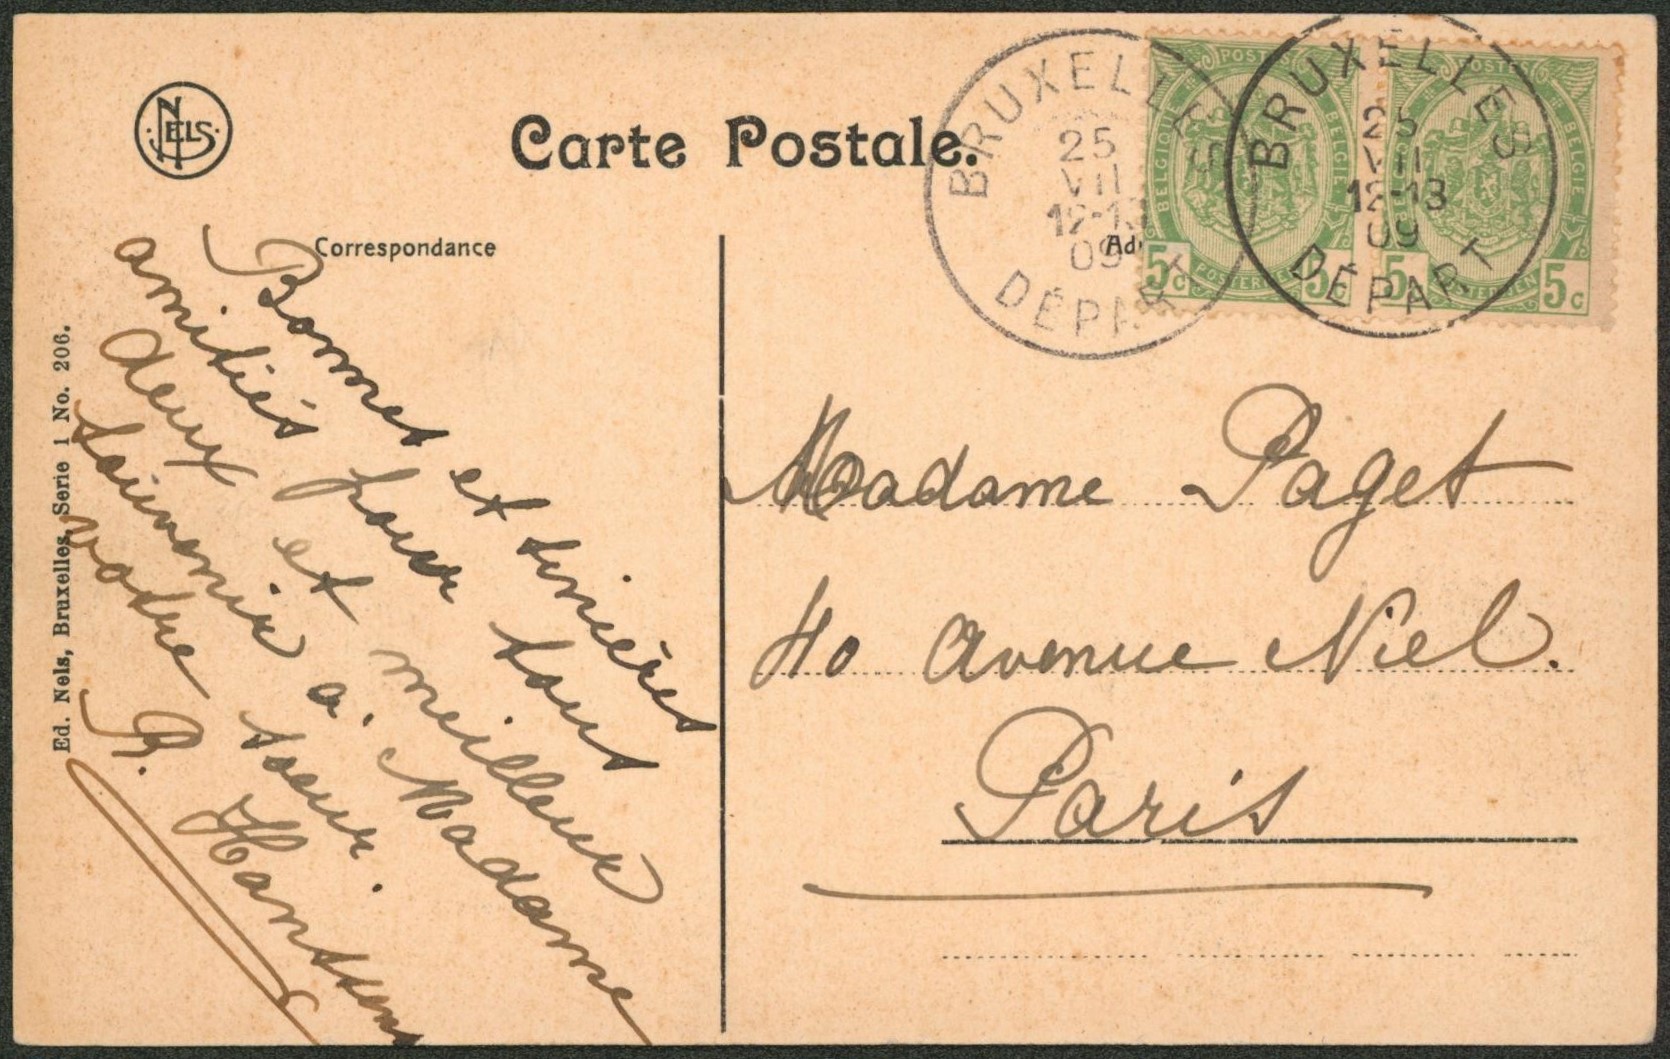 NELS
Carte Postale.
Correspondance
Bonnes et sincères
amitiés pour tous
deux et meilleur
souvenir à Madame
votre soeur.
B. Hanssens
Ed. Nels, Bruxelles, Serie 1 No. 206.
BRUXELLES
25
VII
12-13
09
DÉPART
BRUXELLES
25
VII
12-13
09
DÉPART
POSTES
BELGIQUE
BELGIE
POSTERIJEN
5c
5c
POSTES
BELGIE
POSTERIJEN
5c
5c
Madame Paget
40 Avenue Niel.
Paris